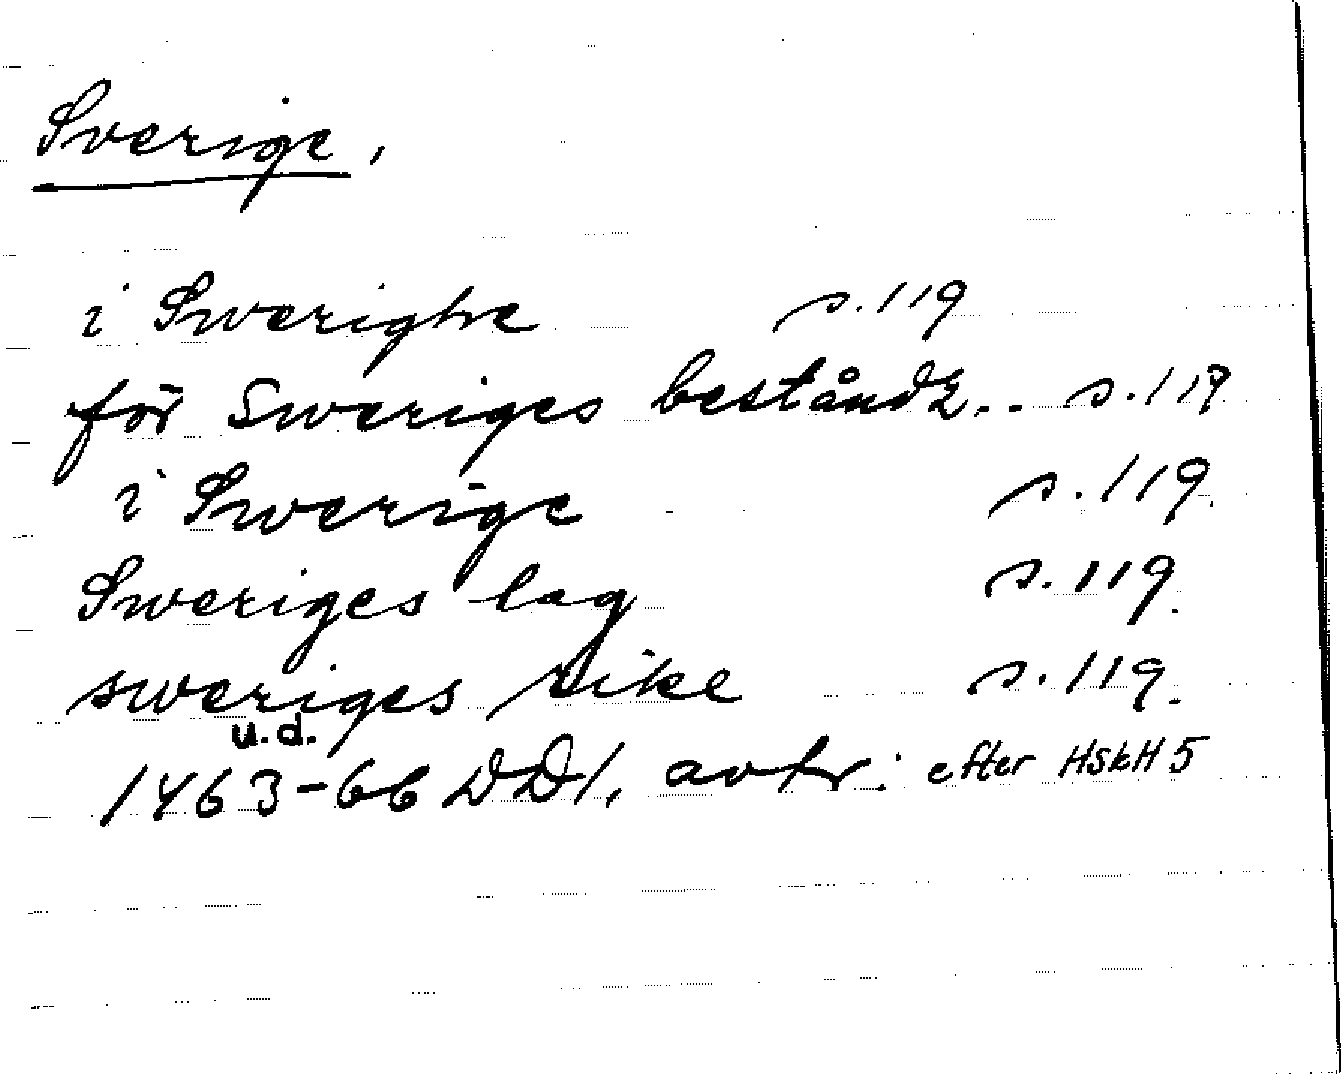 Sverige,
i Swerighe s.119
för Sweriges bestånd.. s.119
i Swerige s.119.
Sweriges lag s.119.
sweriges rike s.119.
u.d.
1463-66 DD1, avtr. efter HSkH 5